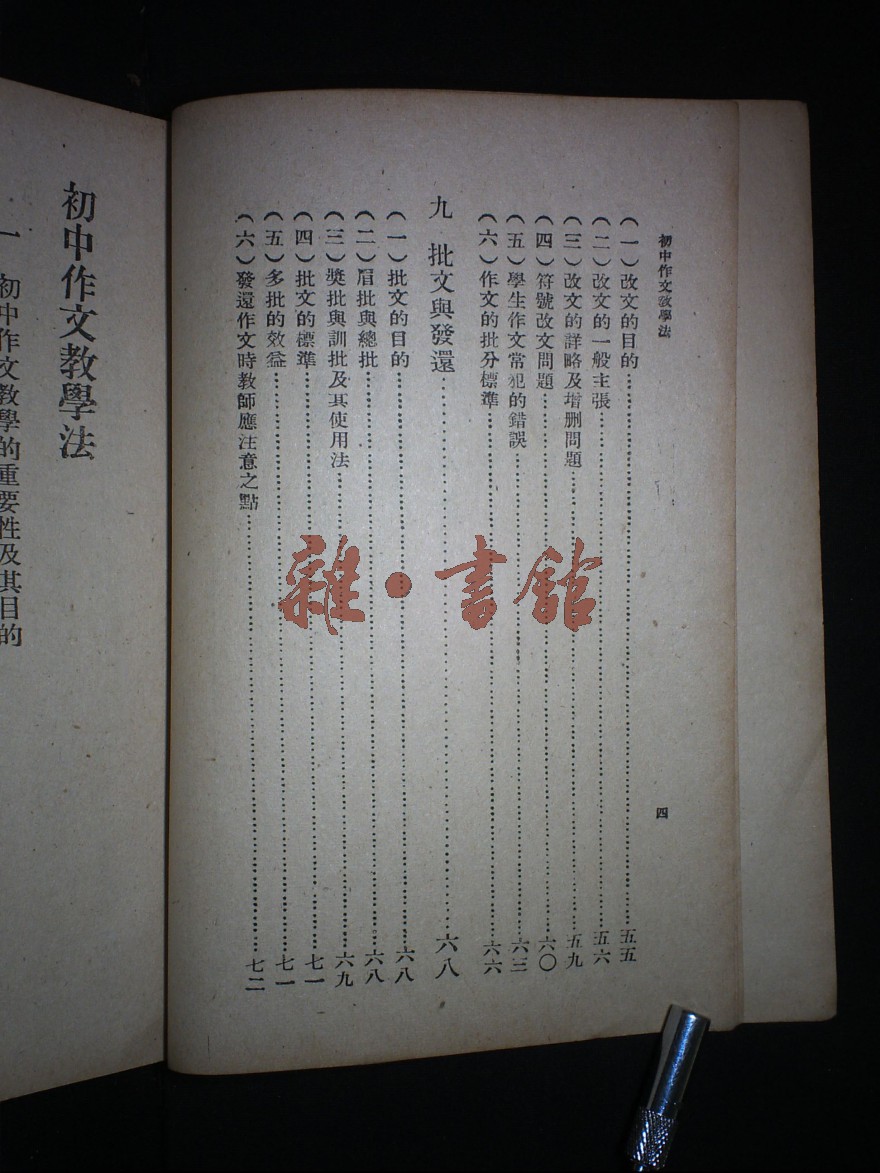 初中作文敎學法
四
(一)改文的目的……五五
(二)改文的一般主張……五六
(三)改文的詳略及增删問題……五九
(四)符號改文問題……六〇
(五)學生作文常犯的錯誤……六三
(六)作文的批分標準……六六
九 批文與發還……六八
(一)批文的目的……六八
(二)眉批與總批……六八
(三)獎批與訓批及其使用法……六九
(四)批文的標準……七一
(五)多批的效益……七一
(六)發還作文時教師應注意之點……七二
初中作文教學法
一 初中作文教學的重要性及其目的
雜·書館